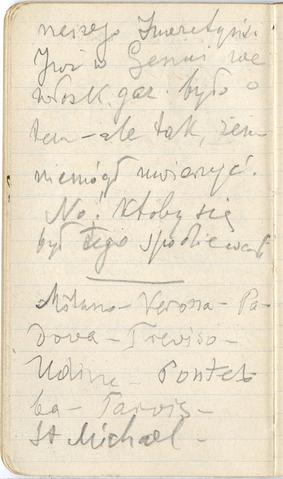 neszego
Już w Genui we
włosk. gaz. było o
tem – ale tak, żem
niemógł uwierzyć.
No! Ktoby się
był tego spodziewał
Milano – Verona – Pa-
dova – Treviso –
Udine – Ponteb-
ba – Tarvis –
St Michael –